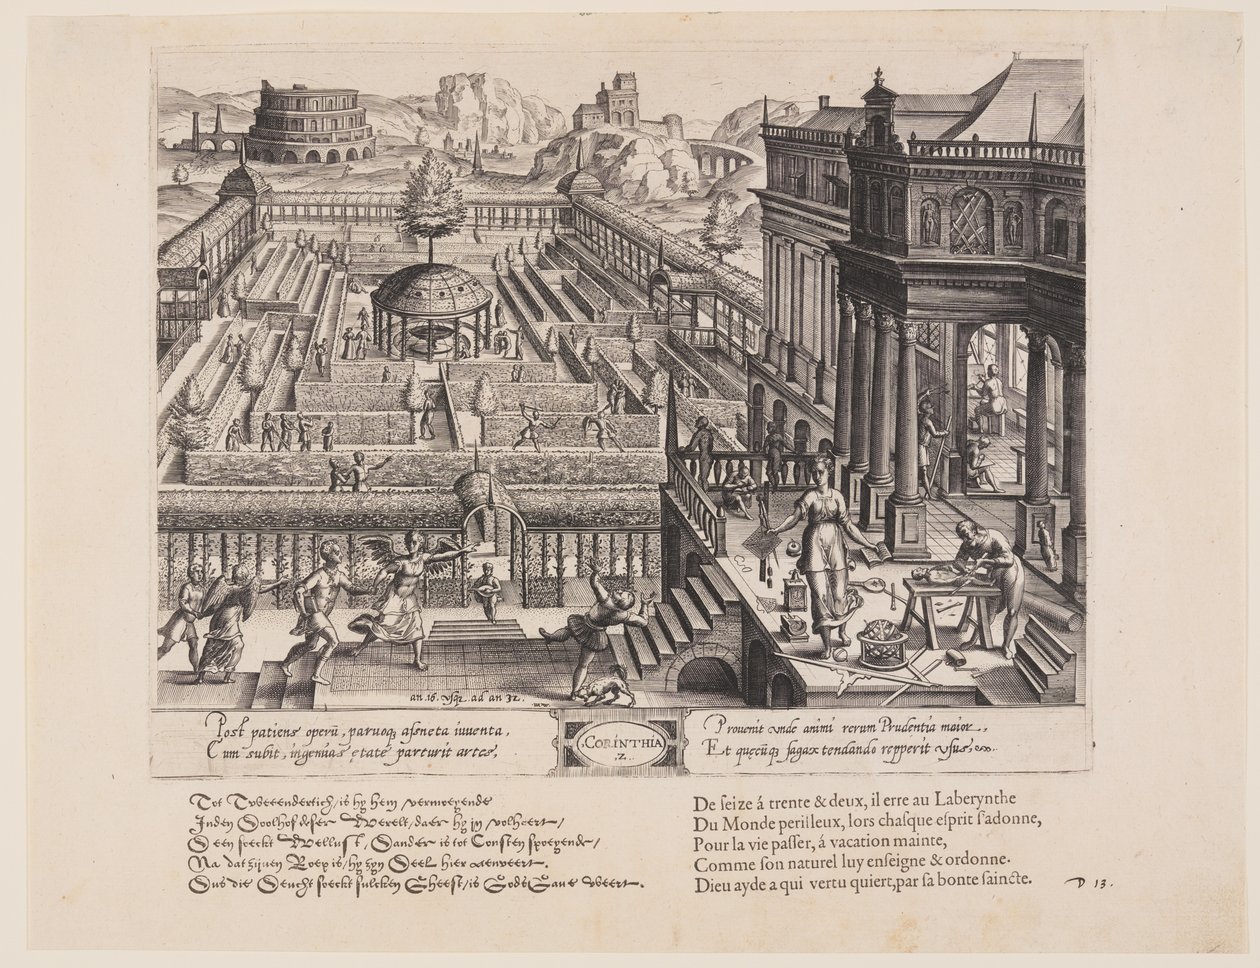 an. 16. usq̃. ad an. 32.
Post patiens operũ, paruoq̃ assueta iuuenta,
Cum subit, ingenuas ętate parturit artes,
CORINTHIA
.2.
Prouenit unde animi rerum Prudentia maior,
Et quęcũq̃ sagax tendando repperit Usus, ex.
Tot Tweeendertich, is hy hem vermoeyende
Inden Doolhof deser Werelt, daer hy in volhert,
D'een soeckt Wellust, Dander is tot Consten spoeyende,
Na dat zijnen Roep is, hy zyn Deel hier aenveert.
Dus die Deucht soeckt sulcken Gheest, is Gods Gave weert.
De ſeize á trente & deux, il erre au Laberynthe
Du Monde perilleux, lors chaſque eſprit ſ'adonne,
Pour la vie paſſer, á vacation mainte,
Comme ſon naturel luy enſeigne & ordonne.
Dieu ayde a qui vertu quiert, par ſa bonte ſaincte.
D 13.